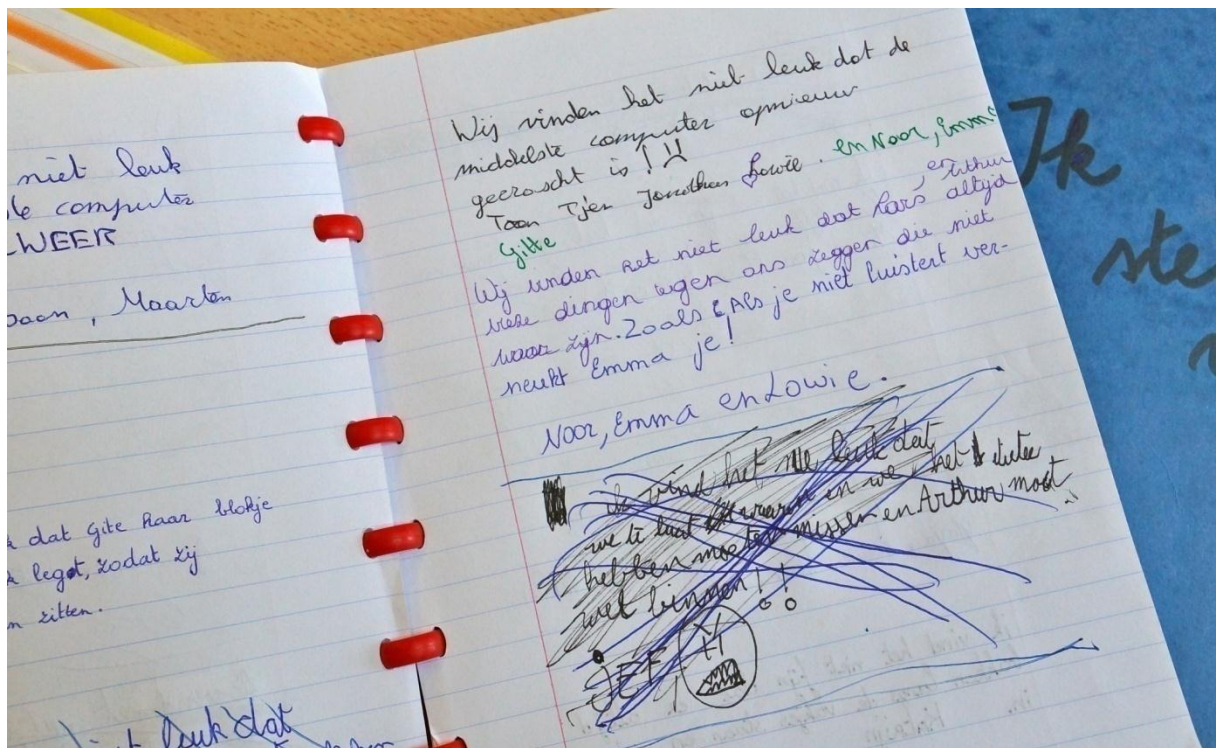 niet leuk
computer
WEER
, Maarten
dat Gite haar blokje
legt, zodat zij
zitten.
leuk dat
Wij vinden het niet leuk dat de
middelste computer opnieuw
gecrascht is !
Toon Tjen Jonathan Lowie. en Noor, Emma
Gitte
en Arthur
Wij vinden het niet leuk dat Lars altijd
vieze dingen tegen ons zeggen die niet
waar zijn. Zoals: Als je niet luistert ver-
neukt Emma je!
Noor, Emma en Lowie.
ik vind het nie leuk dat
we te laat waren en we het
hebben moeten missen en Arthur moet
wel binnen!!
JEF
Ik
ste